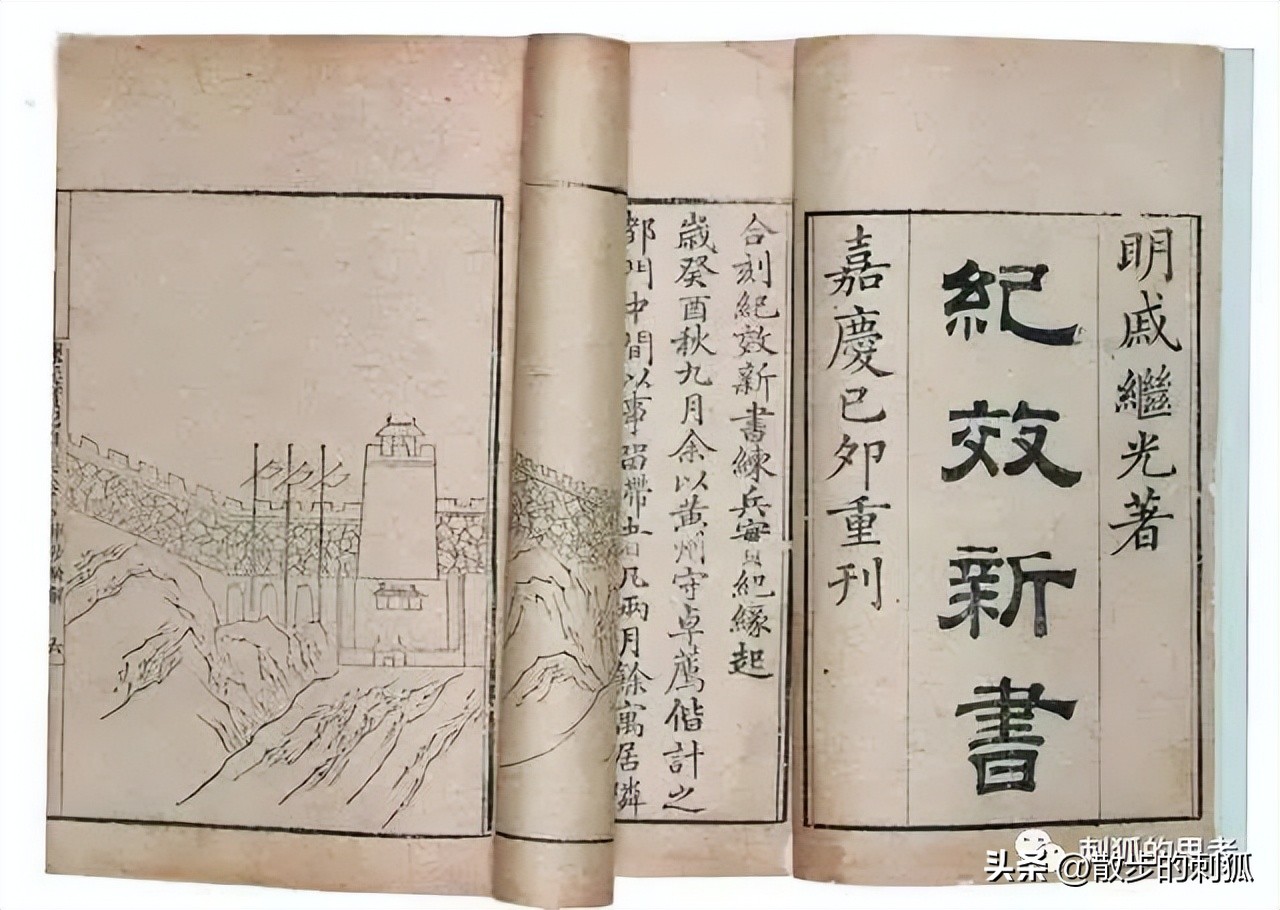 明戚繼光著
紀效新書
嘉慶己卯重刊
合刻紀效新書練兵實紀緣起
歲癸酉秋九月余以黃州守卓薦偕計之
都門中間以事留滯者凡兩月餘寓居隣
刺狐的思考
头条 @散步的刺狐